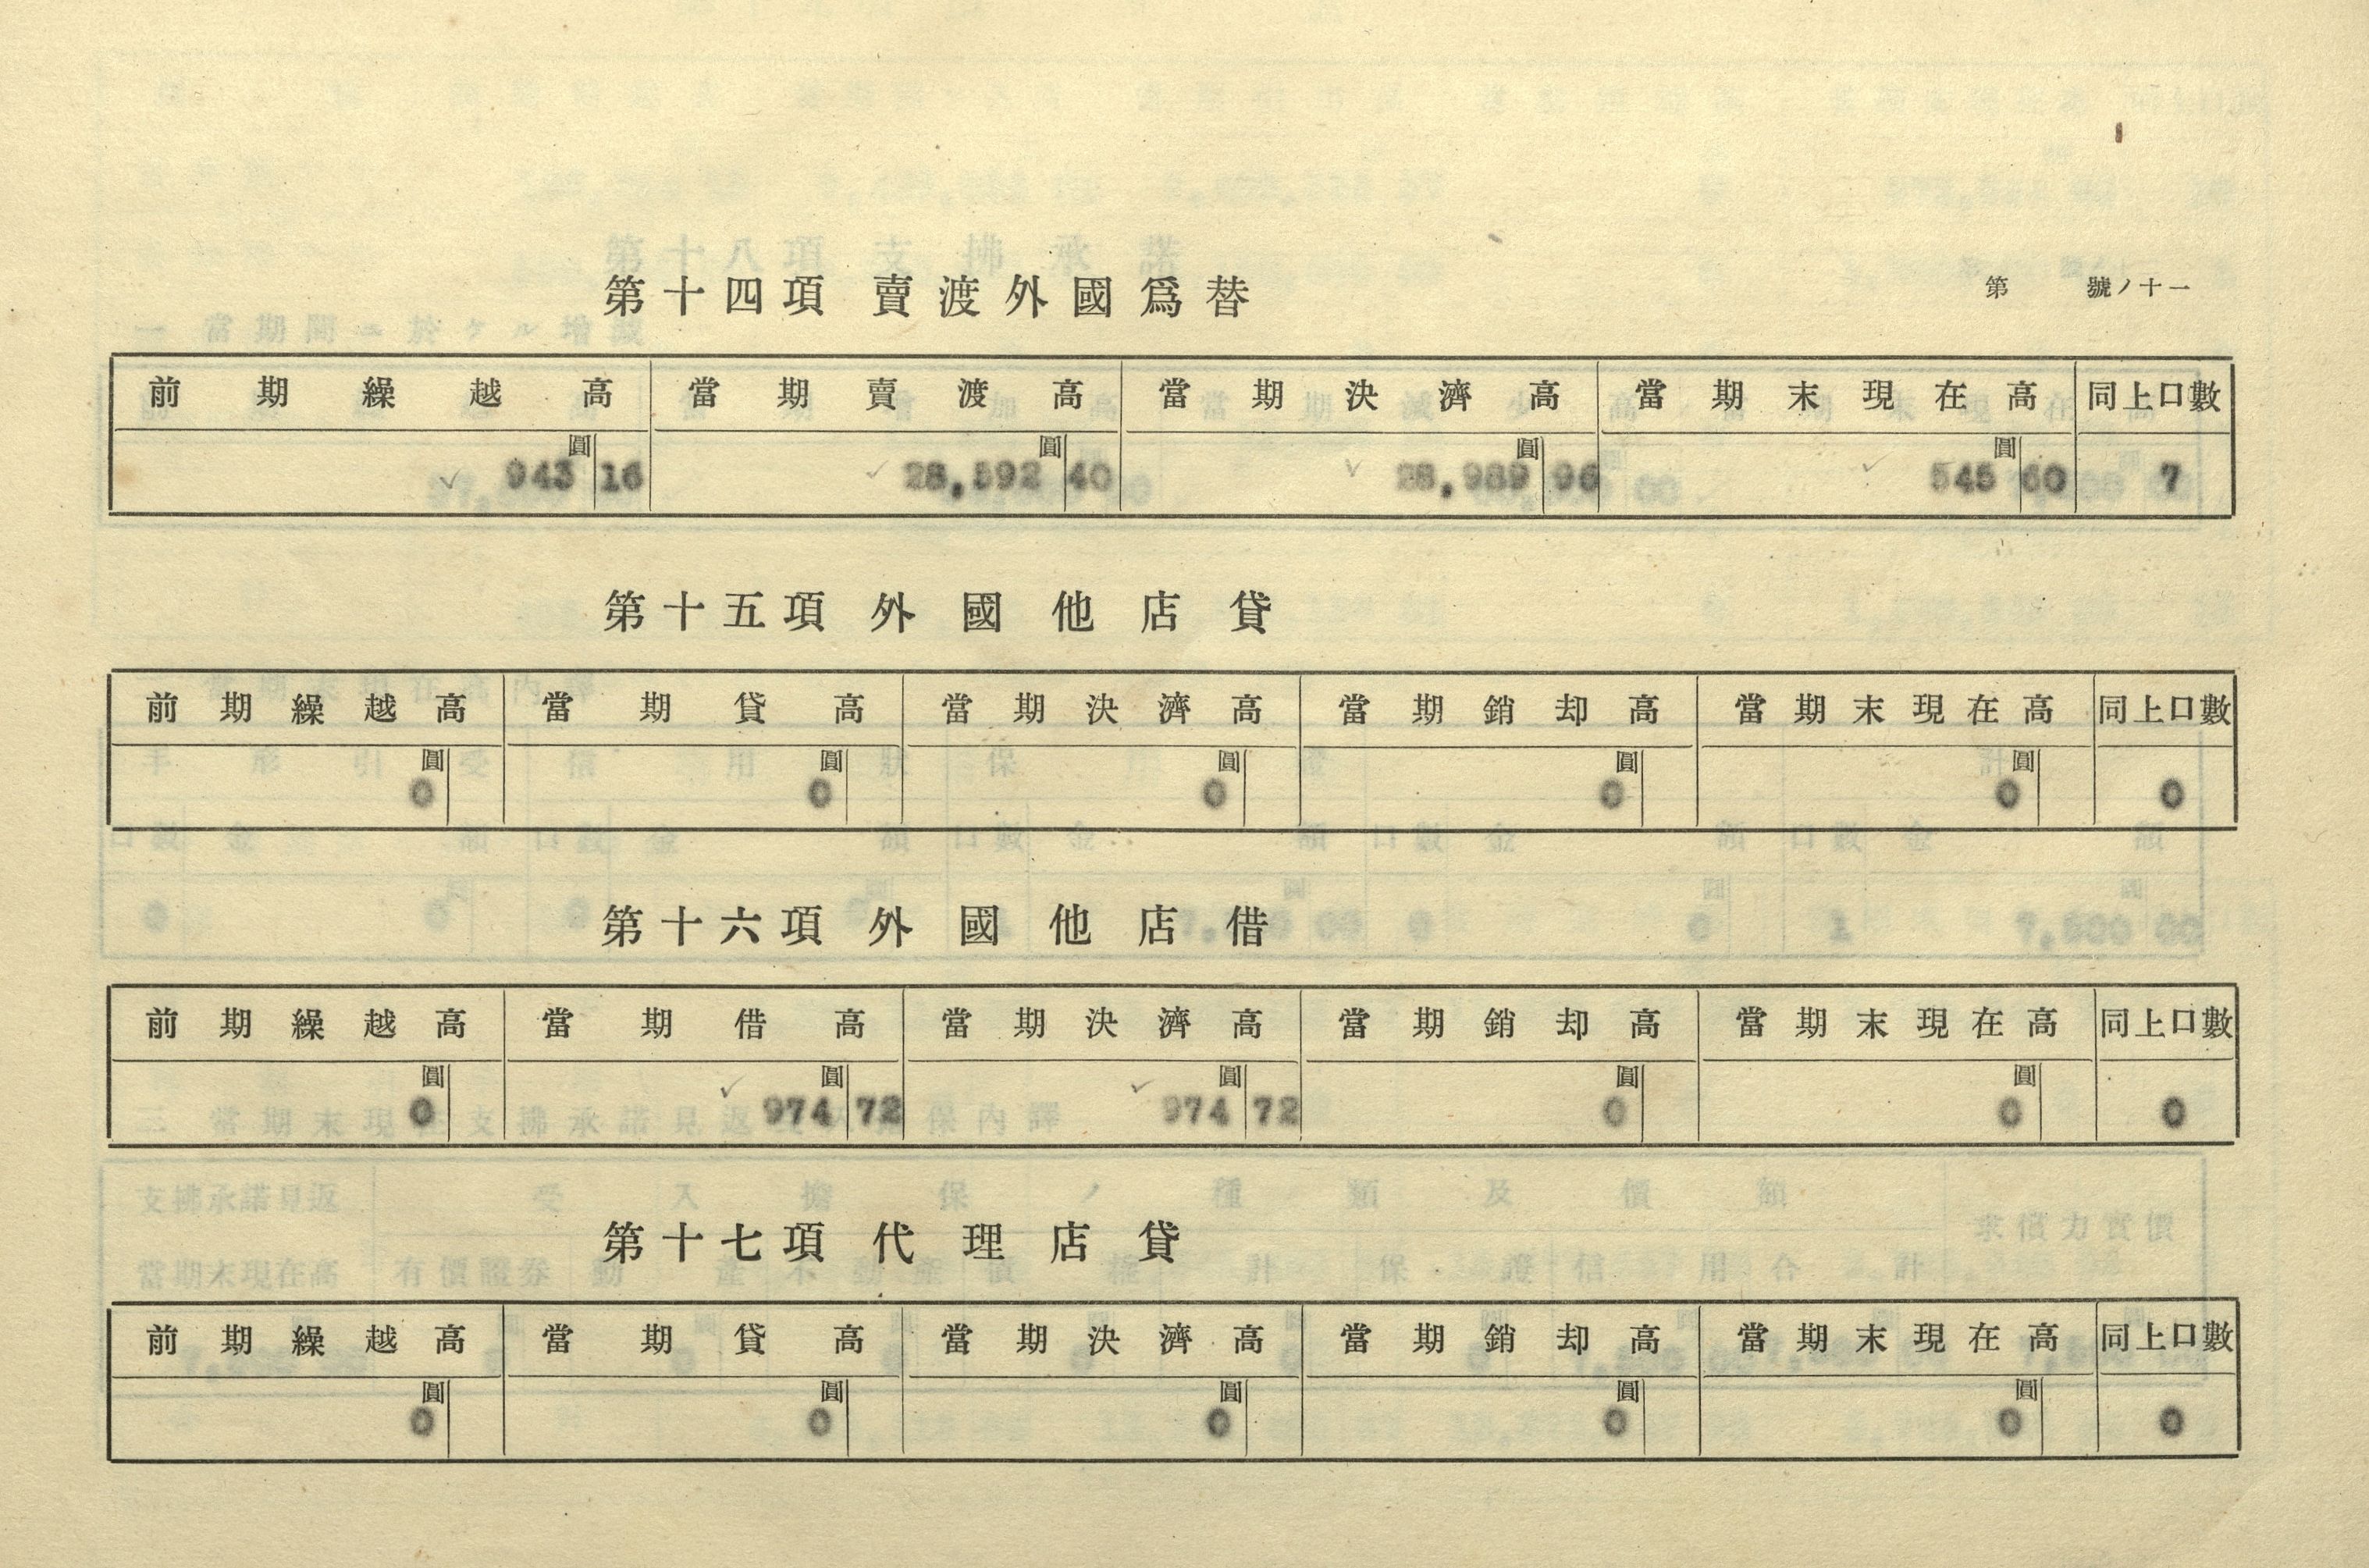 第十四項 賣渡外國爲替
第 號ノ十一
前期繰越高 當期賣渡高 當期決濟高 當期末現在高 同上口數
圓 圓 圓 圓
943 16 28,592 40 28,989 96 545 60 7
第十五項 外國他店貸
前期繰越高 當期貸高 當期決濟高 當期銷却高 當期末現在高 同上口數
圓 圓 圓 圓 圓
0 0 0 0 0 0
第十六項 外國他店借
前期繰越高 當期借高 當期決濟高 當期銷却高 當期末現在高 同上口數
圓 圓 圓 圓 圓
0 974 72 974 72 0 0 0
第十七項 代理店貸
前期繰越高 當期貸高 當期決濟高 當期銷却高 當期末現在高 同上口數
圓 圓 圓 圓 圓
0 0 0 0 0 0